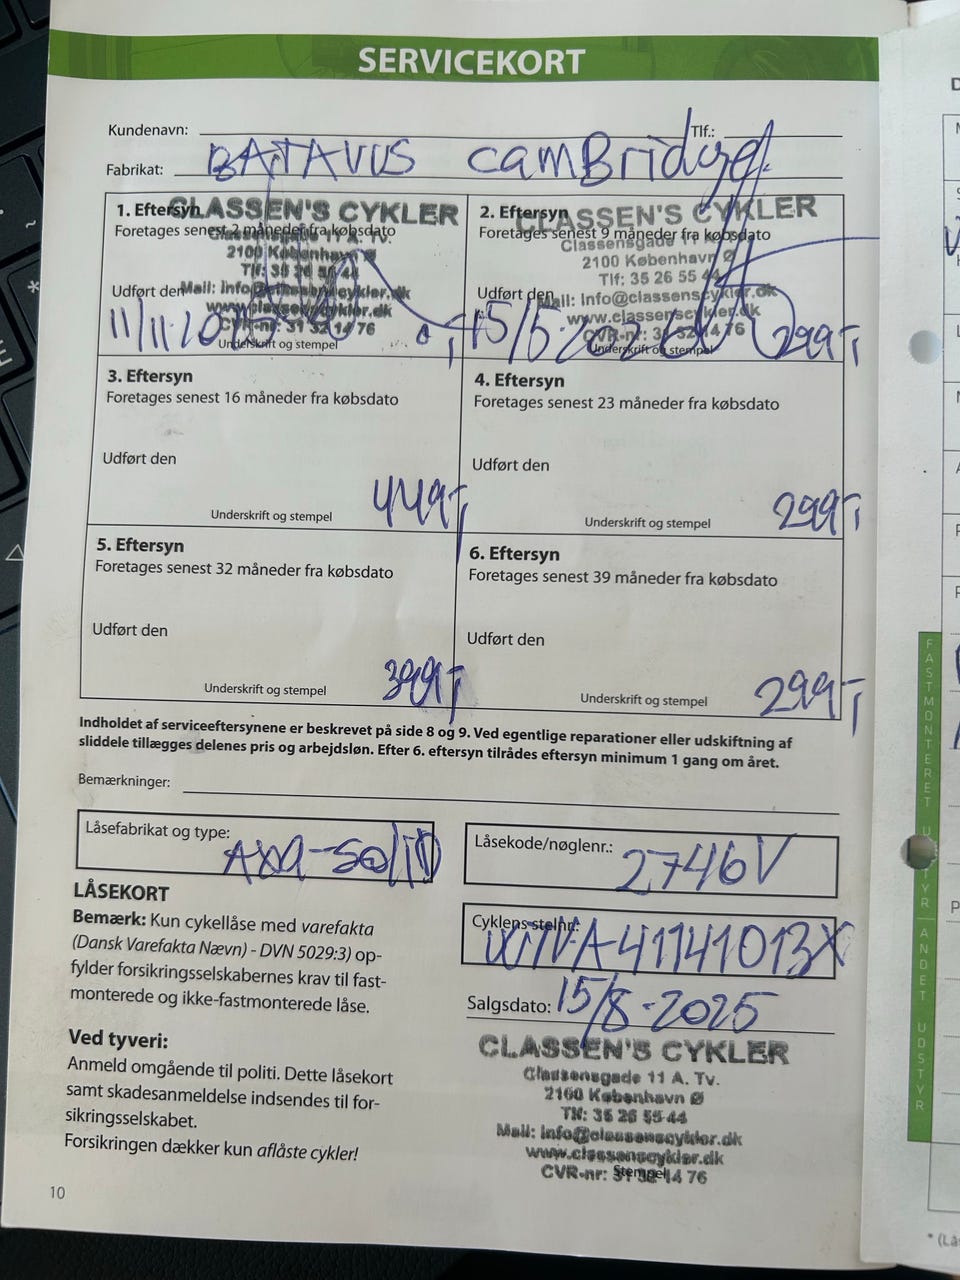 SERVICEKORT
Kundenavn: Tlf.:
Fabrikat: BATAVUS CamBridge
1. Eftersyn
CLASSEN'S CYKLER
Foretages senest 2 måneder fra købsdato
Classensgade 11 A. Tv.
2100 København Ø
Tlf: 35 26 55 44
Udført den
Mail: Info@classenscykler.dk
www.classenscykler.dk
CVR-nr: 31 32 14 76
11/11
Underskrift og stempel
2. Eftersyn
CLASSEN'S CYKLER
Foretages senest 9 måneder fra købsdato
Classensgade 11
2100 København Ø
Tlf: 35 26 55 44
Udført den
Mail: Info@classenscykler.dk
www.classenscykler.dk
CVR-nr: 31 32 14 76
15/5 299,-
Underskrift og stempel
3. Eftersyn
Foretages senest 16 måneder fra købsdato
Udført den
Underskrift og stempel 449,-
4. Eftersyn
Foretages senest 23 måneder fra købsdato
Udført den
Underskrift og stempel 299,-
5. Eftersyn
Foretages senest 32 måneder fra købsdato
Udført den
Underskrift og stempel 399,-
6. Eftersyn
Foretages senest 39 måneder fra købsdato
Udført den
Underskrift og stempel 299,-
Indholdet af serviceeftersynene er beskrevet på side 8 og 9. Ved egentlige reparationer eller udskiftning af
sliddele tillægges delenes pris og arbejdsløn. Efter 6. eftersyn tilrådes eftersyn minimum 1 gang om året.
Bemærkninger:
Låsefabrikat og type: AXA-SoliD
LÅSEKORT
Bemærk: Kun cykellåse med varefakta
(Dansk Varefakta Nævn) - DVN 5029:3) op-
fylder forsikringsselskabernes krav til fast-
monterede og ikke-fastmonterede låse.
Ved tyveri:
Anmeld omgående til politi. Dette låsekort
samt skadesanmeldelse indsendes til for-
sikringsselskabet.
Forsikringen dækker kun aflåste cykler!
Låsekode/nøglenr.: 2746V
Cyklens stelnr.:
41141013X
Salgsdato: 15/8-2025
CLASSEN'S CYKLER
Classensgade 11 A. Tv.
2100 København Ø
Tlf: 35 26 55 44
Mail: Info@classenscykler.dk
www.classenscykler.dk
CVR-nr: 31 32 14 76
Stempel
10
FASTMONTERET UDSTYR ANDET UDSTYR